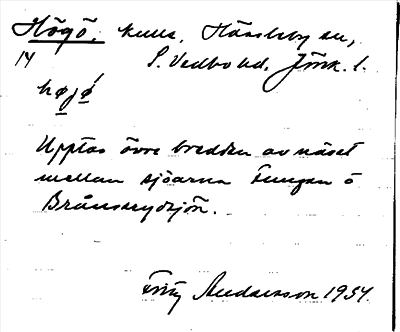 Högö, kulle, Hässleby sn,
14 S. Vedbo hd. Jönk. l.
højǿ
Upptar övre bredden av näset
mellan sjöarna Tungan o
Brånarydsjön.
Fritz Andersson 1934.